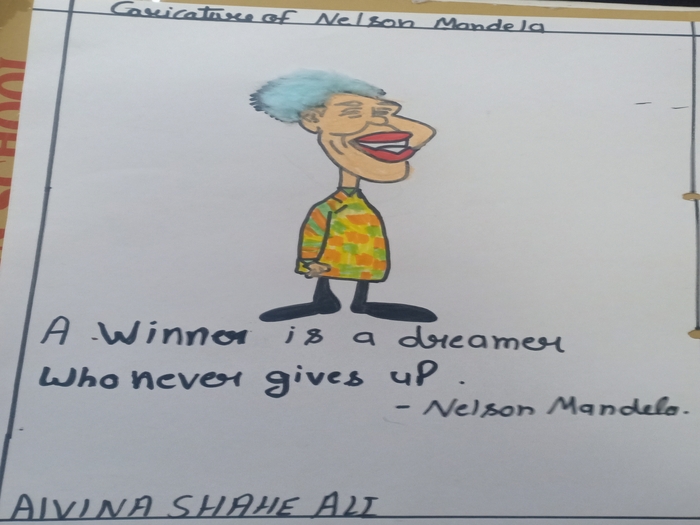 Caricature of Nelson Mandela
A Winner is a dreamer
Who never gives up.
- Nelson Mandela.
AIVINA SHAHE ALI
SCHOOL